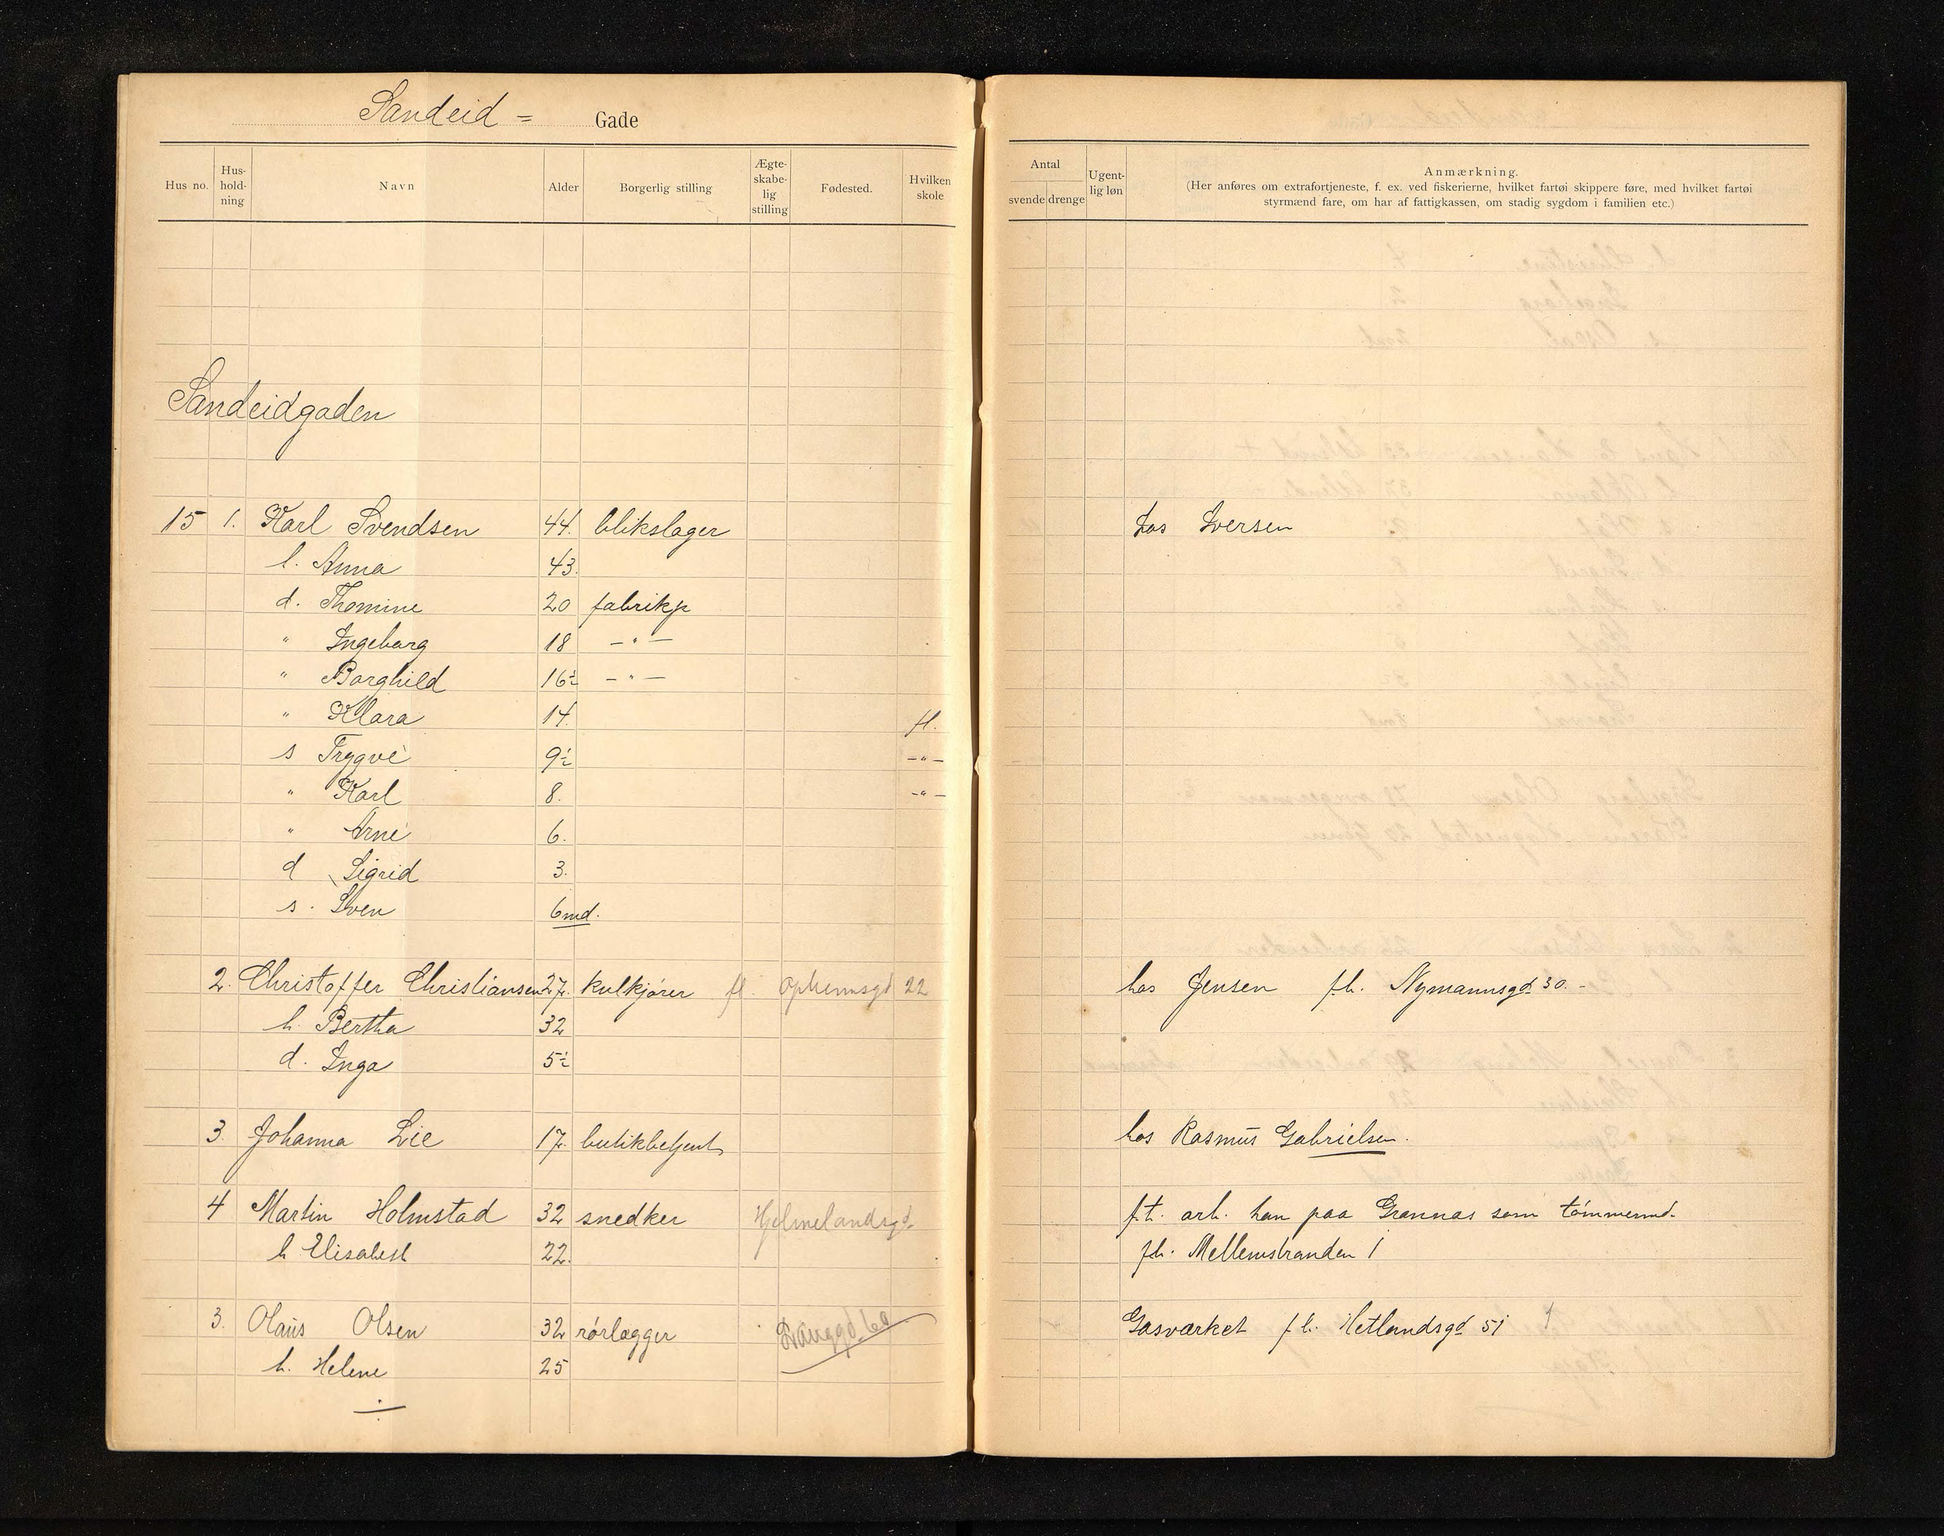 Sandeid = Gade
Hus no. Hus-hold-ning Navn Alder Borgerlig stilling Ægte-skabe-lig stilling Fødested. Hvilken skole
Antal svende drenge Ugent-lig løn Anmærkning.
(Her anføres om extrafortjeneste, f. ex. ved fiskerierne, hvilket fartøi skippere føre, med hvilket fartøi
styrmænd fare, om har af fattigkassen, om stadig sygdom i familien etc.)
Sandeidgaden
15 1. Karl Svendsen 44. blikslager hos Iversen
h. Anna 43.
d. Thomine 20 fabrikp
" Ingeborg 18 – " –
" Borghild 16½ – " –
" Klara 14. fl.
s Trygve 9½ – " –
" Karl 8. – " –
" Arne 6.
d Sigrid 3.
s. Sven 6 md.
2. Christoffer Christiansen 27. kulkjører fl 22 hos Jensen fh. Nymannsgd 30. -
h. Bertha 32
d. Inga 5½
3. Johanna Lie 17. butikbetjent hos Rasmus Gabrielsen.
4 Martin Holmstad 32 snedker Hjelmelandsgd f.t. arb. han paa Grannas som tømmermd.
h Elisabeth 22. fh. Mellemstranden 1
3. Olaus Olsen 32 rørlægger Gasværket fh. Hetlandsgd 51
h. Helene 25